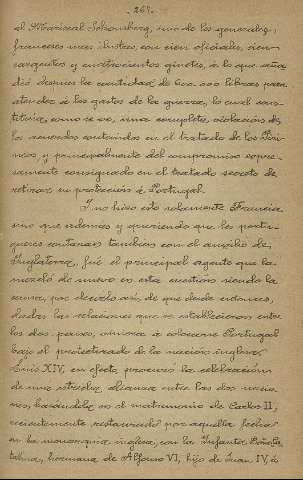 - 267 -
al Mariscal Schomberg, uno de los generales
franceses mas ilustres, con cien oficiales, cien
sargentos y cuatrocientos ginetes, á lo que aña
dió despues la cantidad de 600.000 libras para
atender á los gastos de la guerra, lo cual cons-
tituia, como se ve, una completa violación de
los acuerdos contenidos en el tratado de los Piri-
neos y principalmente del compromiso expre-
samente consignado en el tratado secreto de
retirar su protección á Portugal.
Y no hizo esto solamente Francia
sino que ademas y queriendo que los portu-
gueses contaran tambien con el auxilio de
Inglaterra, fué el principal agente que la
mezcló de nuevo en esta cuestión siendo la
causa, por decirlo así, de que desde entonces,
dadas las relaciones que se establecieron entre
los dos paises, viniera á colocarse Portugal
bajo el protectorado de la nación inglesa.
Luis XIV, en efecto, procuró la celebración
de una estrecha alianza entre las dos nacio
nes, basándola en el matrimonio de Carlos II,
recientemente restaurado por aquella fecha
en la monarquia inglesa, con la Infanta Doña Ca
talina, hermana de Alfonso VI, hijo de Juan IV, á